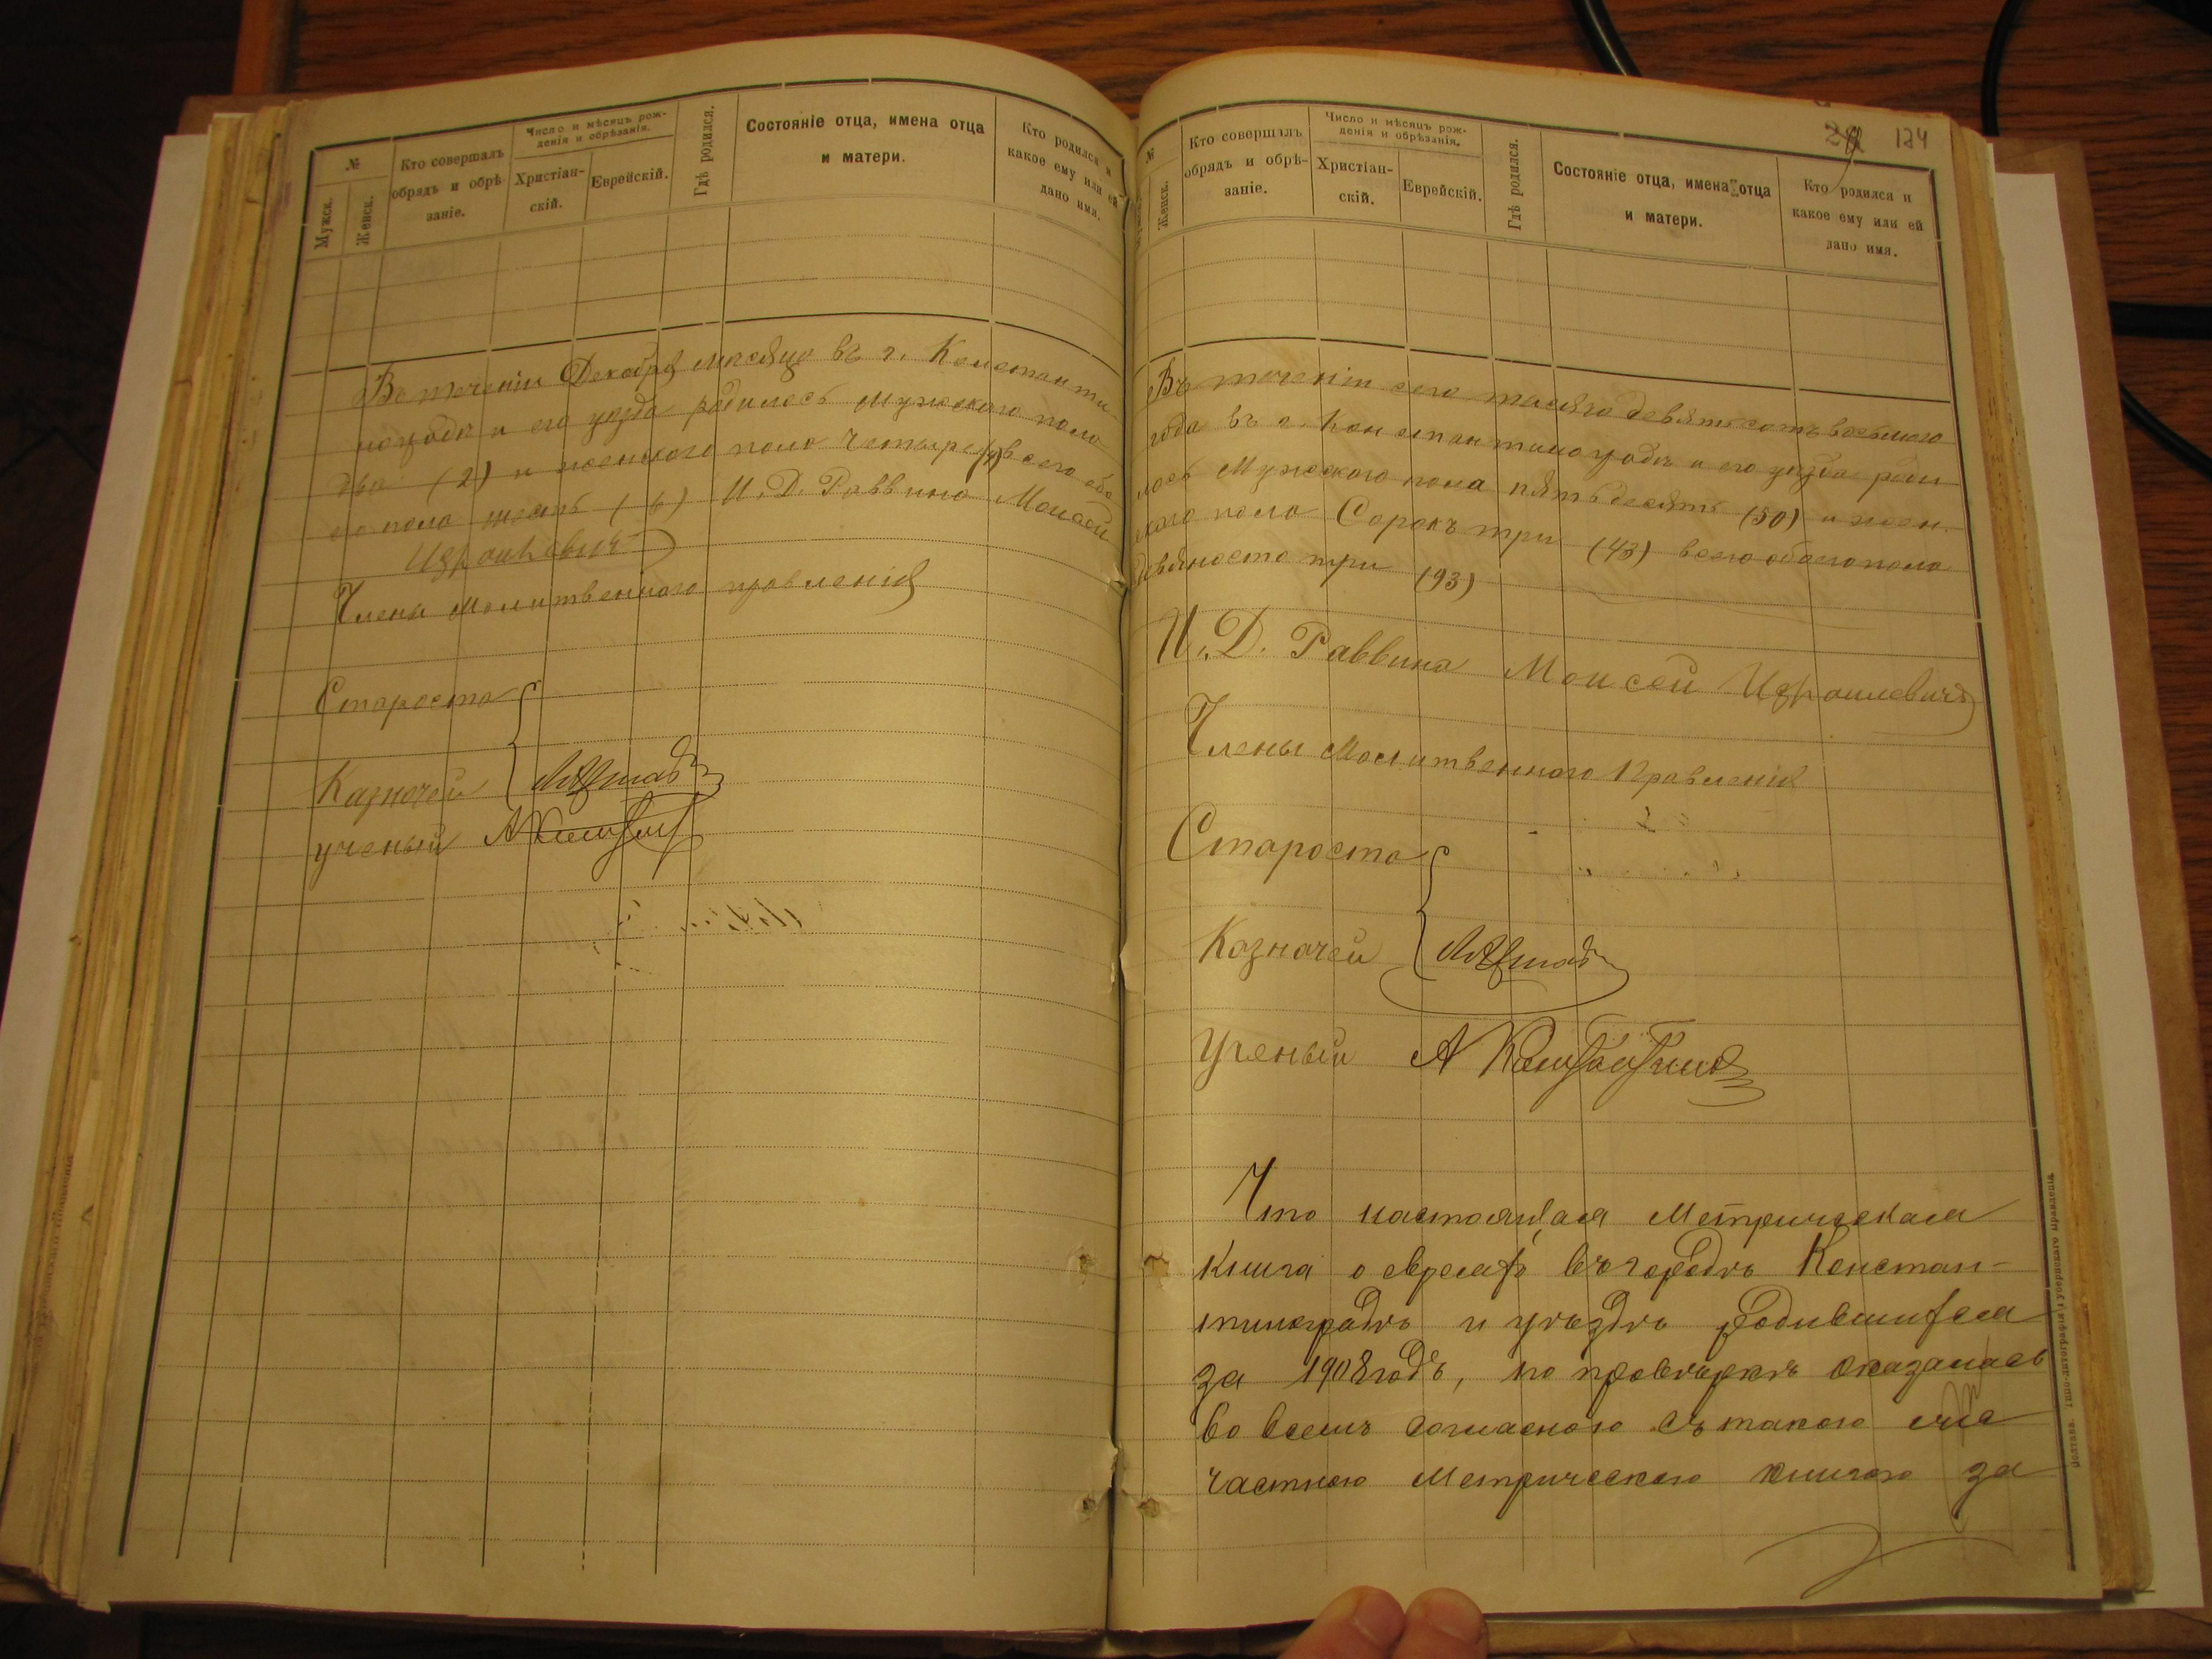 №
Мужск.
Женск.
Кто совершалъ
обрядъ и обрѣ-
заніе.
Число и мѣсяцъ рож-
денія и обрѣзанія.
Христіан-
скій.
Еврейскій.
Гдѣ родился.
Состояніе отца, имена отца
и матери.
Кто родился и
какое ему или ей
дано имя.
Въ теченіи Декабря мѣсяца въ г. Константи-
ноградѣ и его уѣзда родилось мужского пола
два (2) и женского пола четыре (4) всего обо
его пола шесть (6) И. Д. Раввина Моисей
Израилевичъ
Члены Молитвенного правленія
Староста
Казначей
ученый
24 134
№
Женск.
Кто совершалъ
обрядъ и обрѣ-
заніе.
Число и мѣсяцъ рож-
денія и обрѣзанія.
Христіан-
скій.
Еврейскій.
Гдѣ родился.
Состояніе отца, имена отца
и матери.
Кто родился и
какое ему или ей
дано имя.
Въ теченіи сего тысяча девятьсотъ восьмого
года въ г. Константиноградѣ и его уѣзда роди-
лось Мужского пола пятьдесятъ (50) и жен-
ского пола Сорокъ три (43) всего обоего пола
девяносто три (93)
И. Д. Раввина Моисей Израилевичъ
Члены Молитвенного Правленія
Староста
Казначей
Ученый А
Что настоящая Метрическая
книга о евреяхъ въ городѣ Констан-
тиноградѣ и уѣздѣ родившихся
за 1908 годъ, по провѣркѣ оказалась
во всемъ согласною съ такою же
частною Метрическою книгою за
Полтава. Типо-литографія Губернскаго Правленія